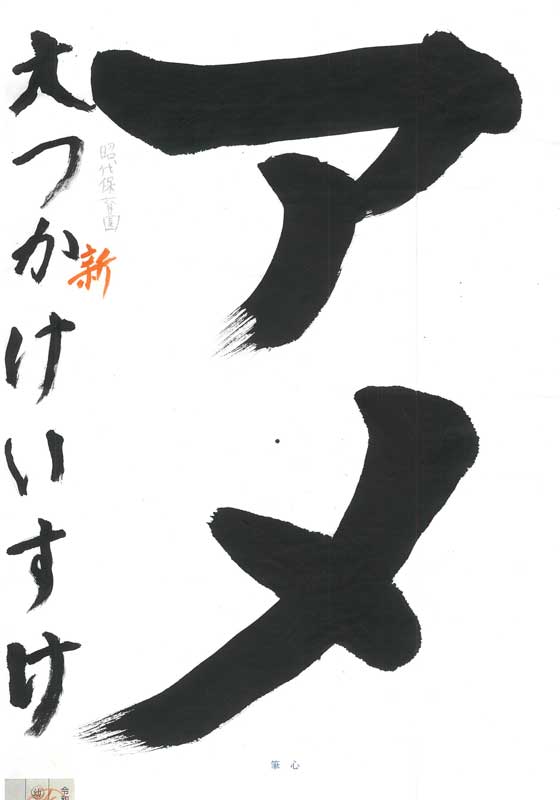 アメ
大つかけいすけ
昭代保育園
新
筆心
令和
幼